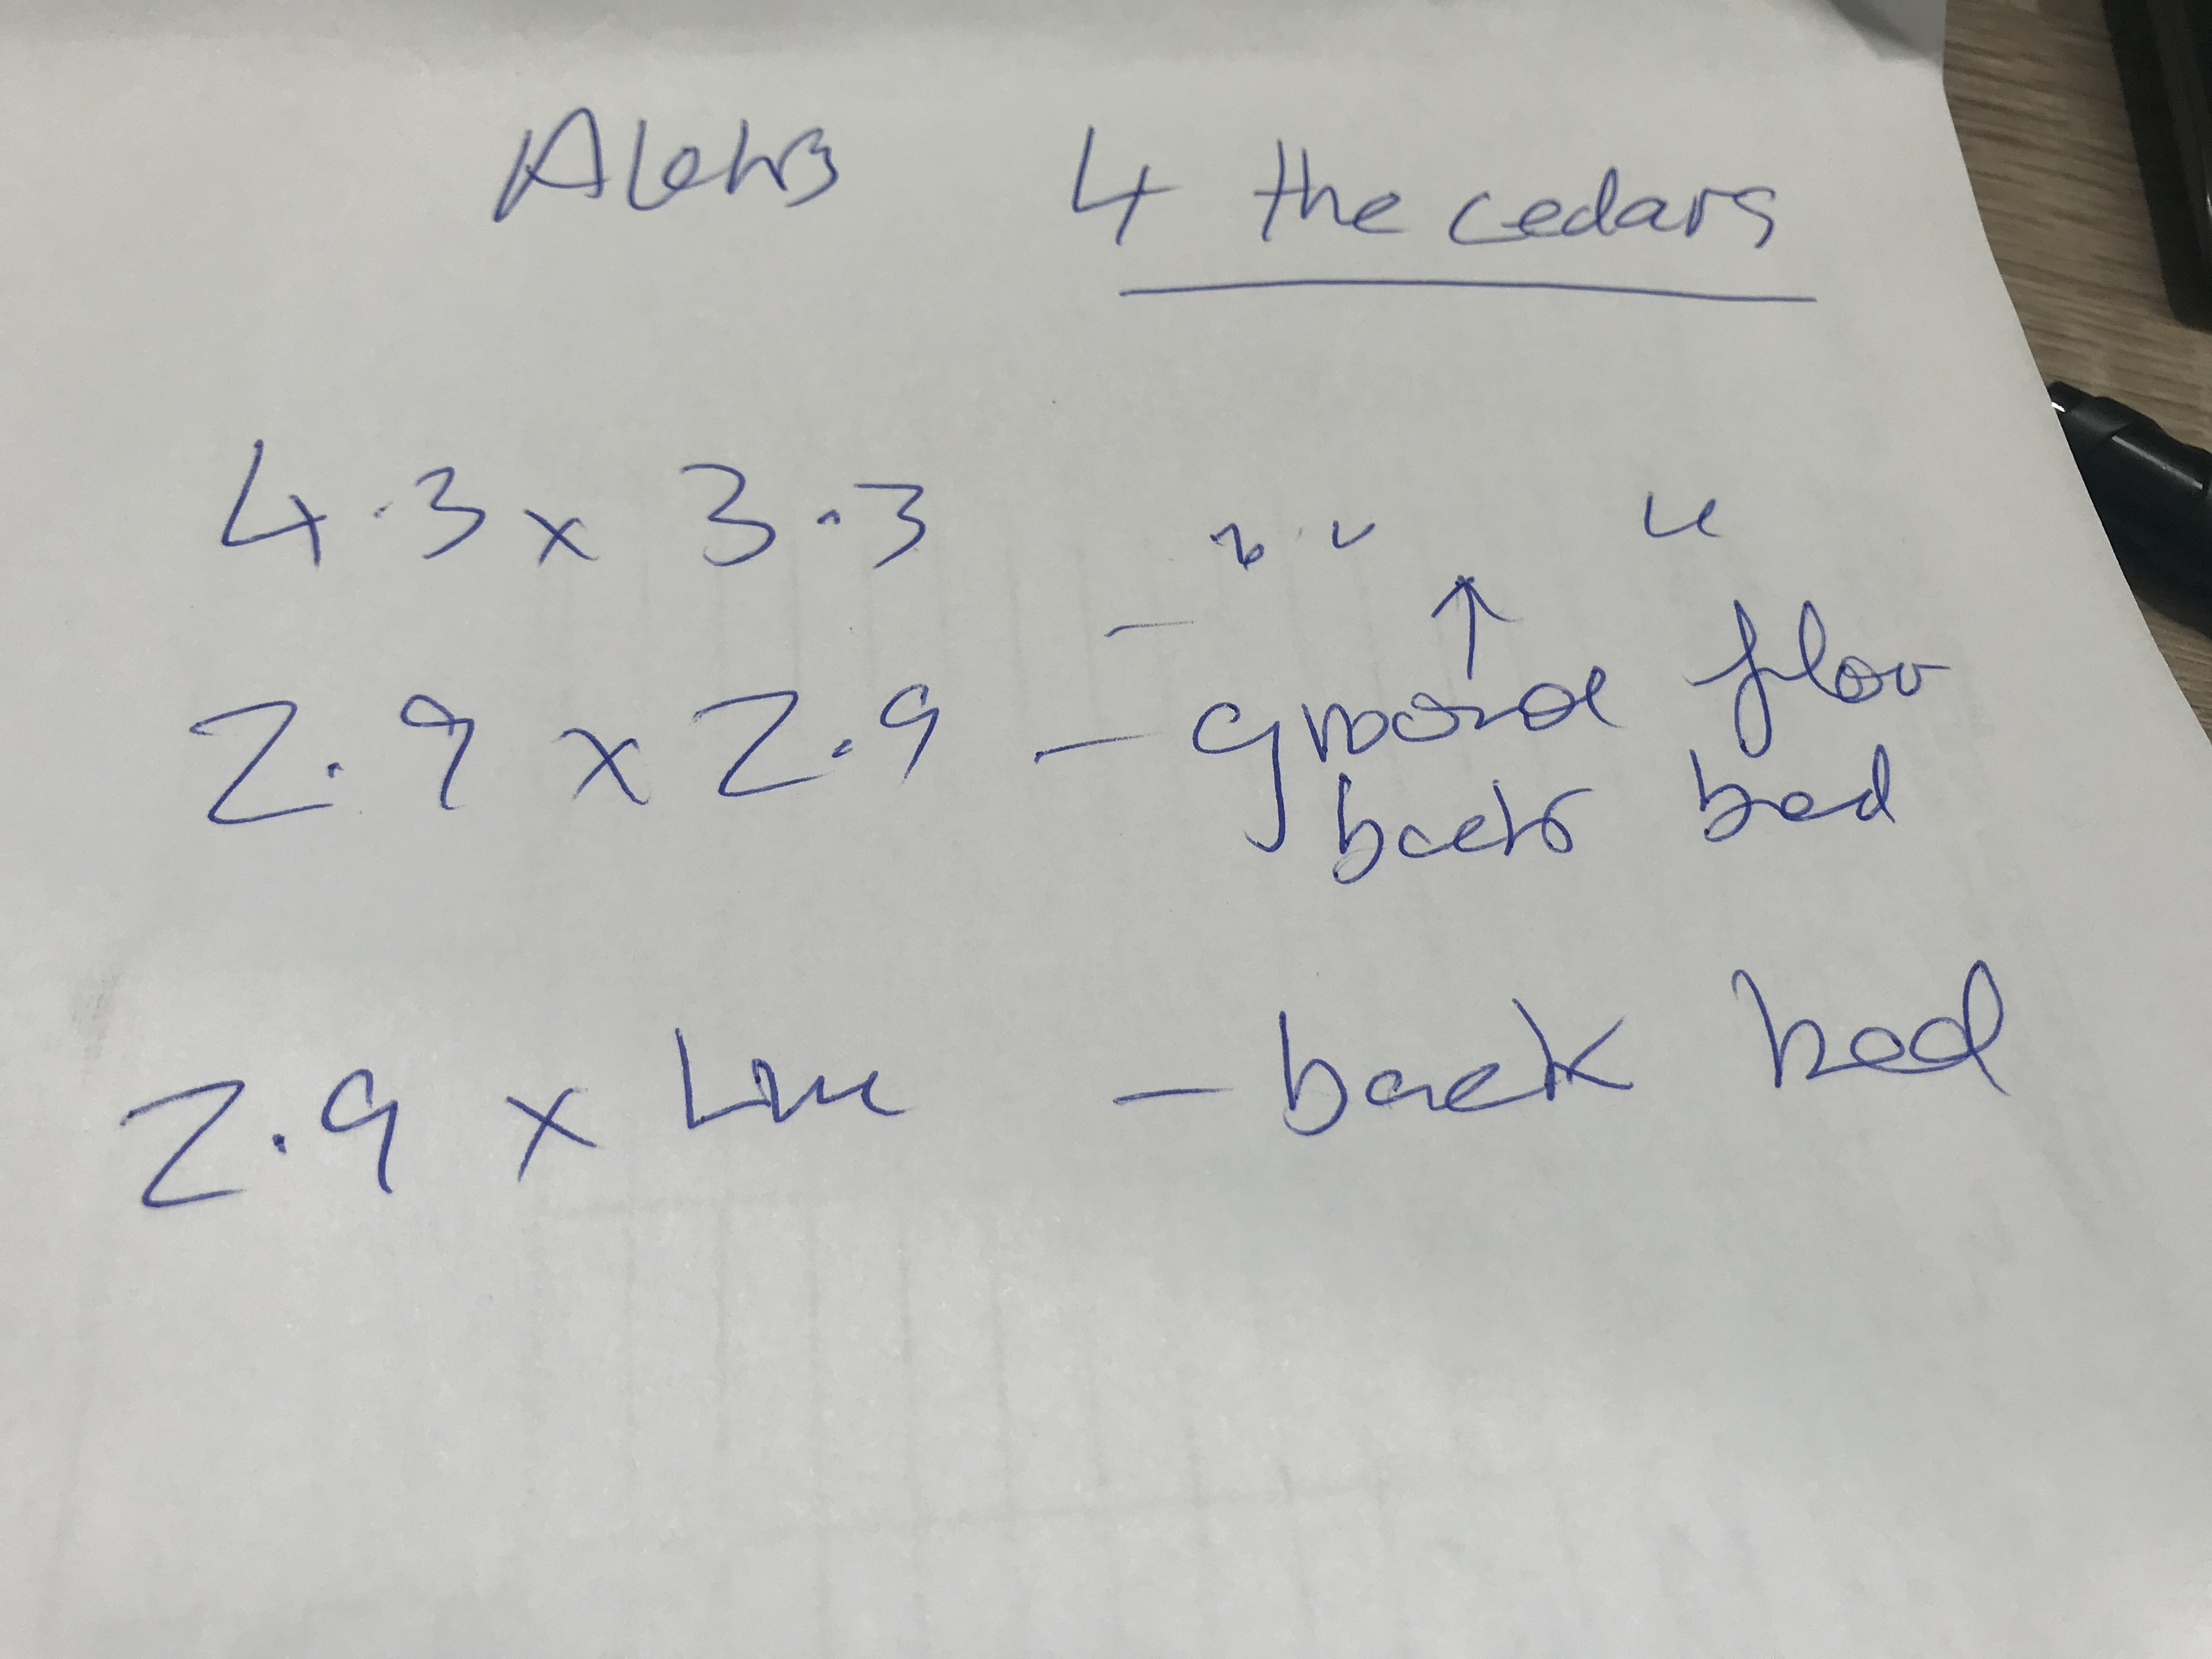 Alehs 4 the cedars
4.3 x 3.3 - " " "
2.9 x 2.9 - ground floor
back bed
2.9 x 4m - back bed